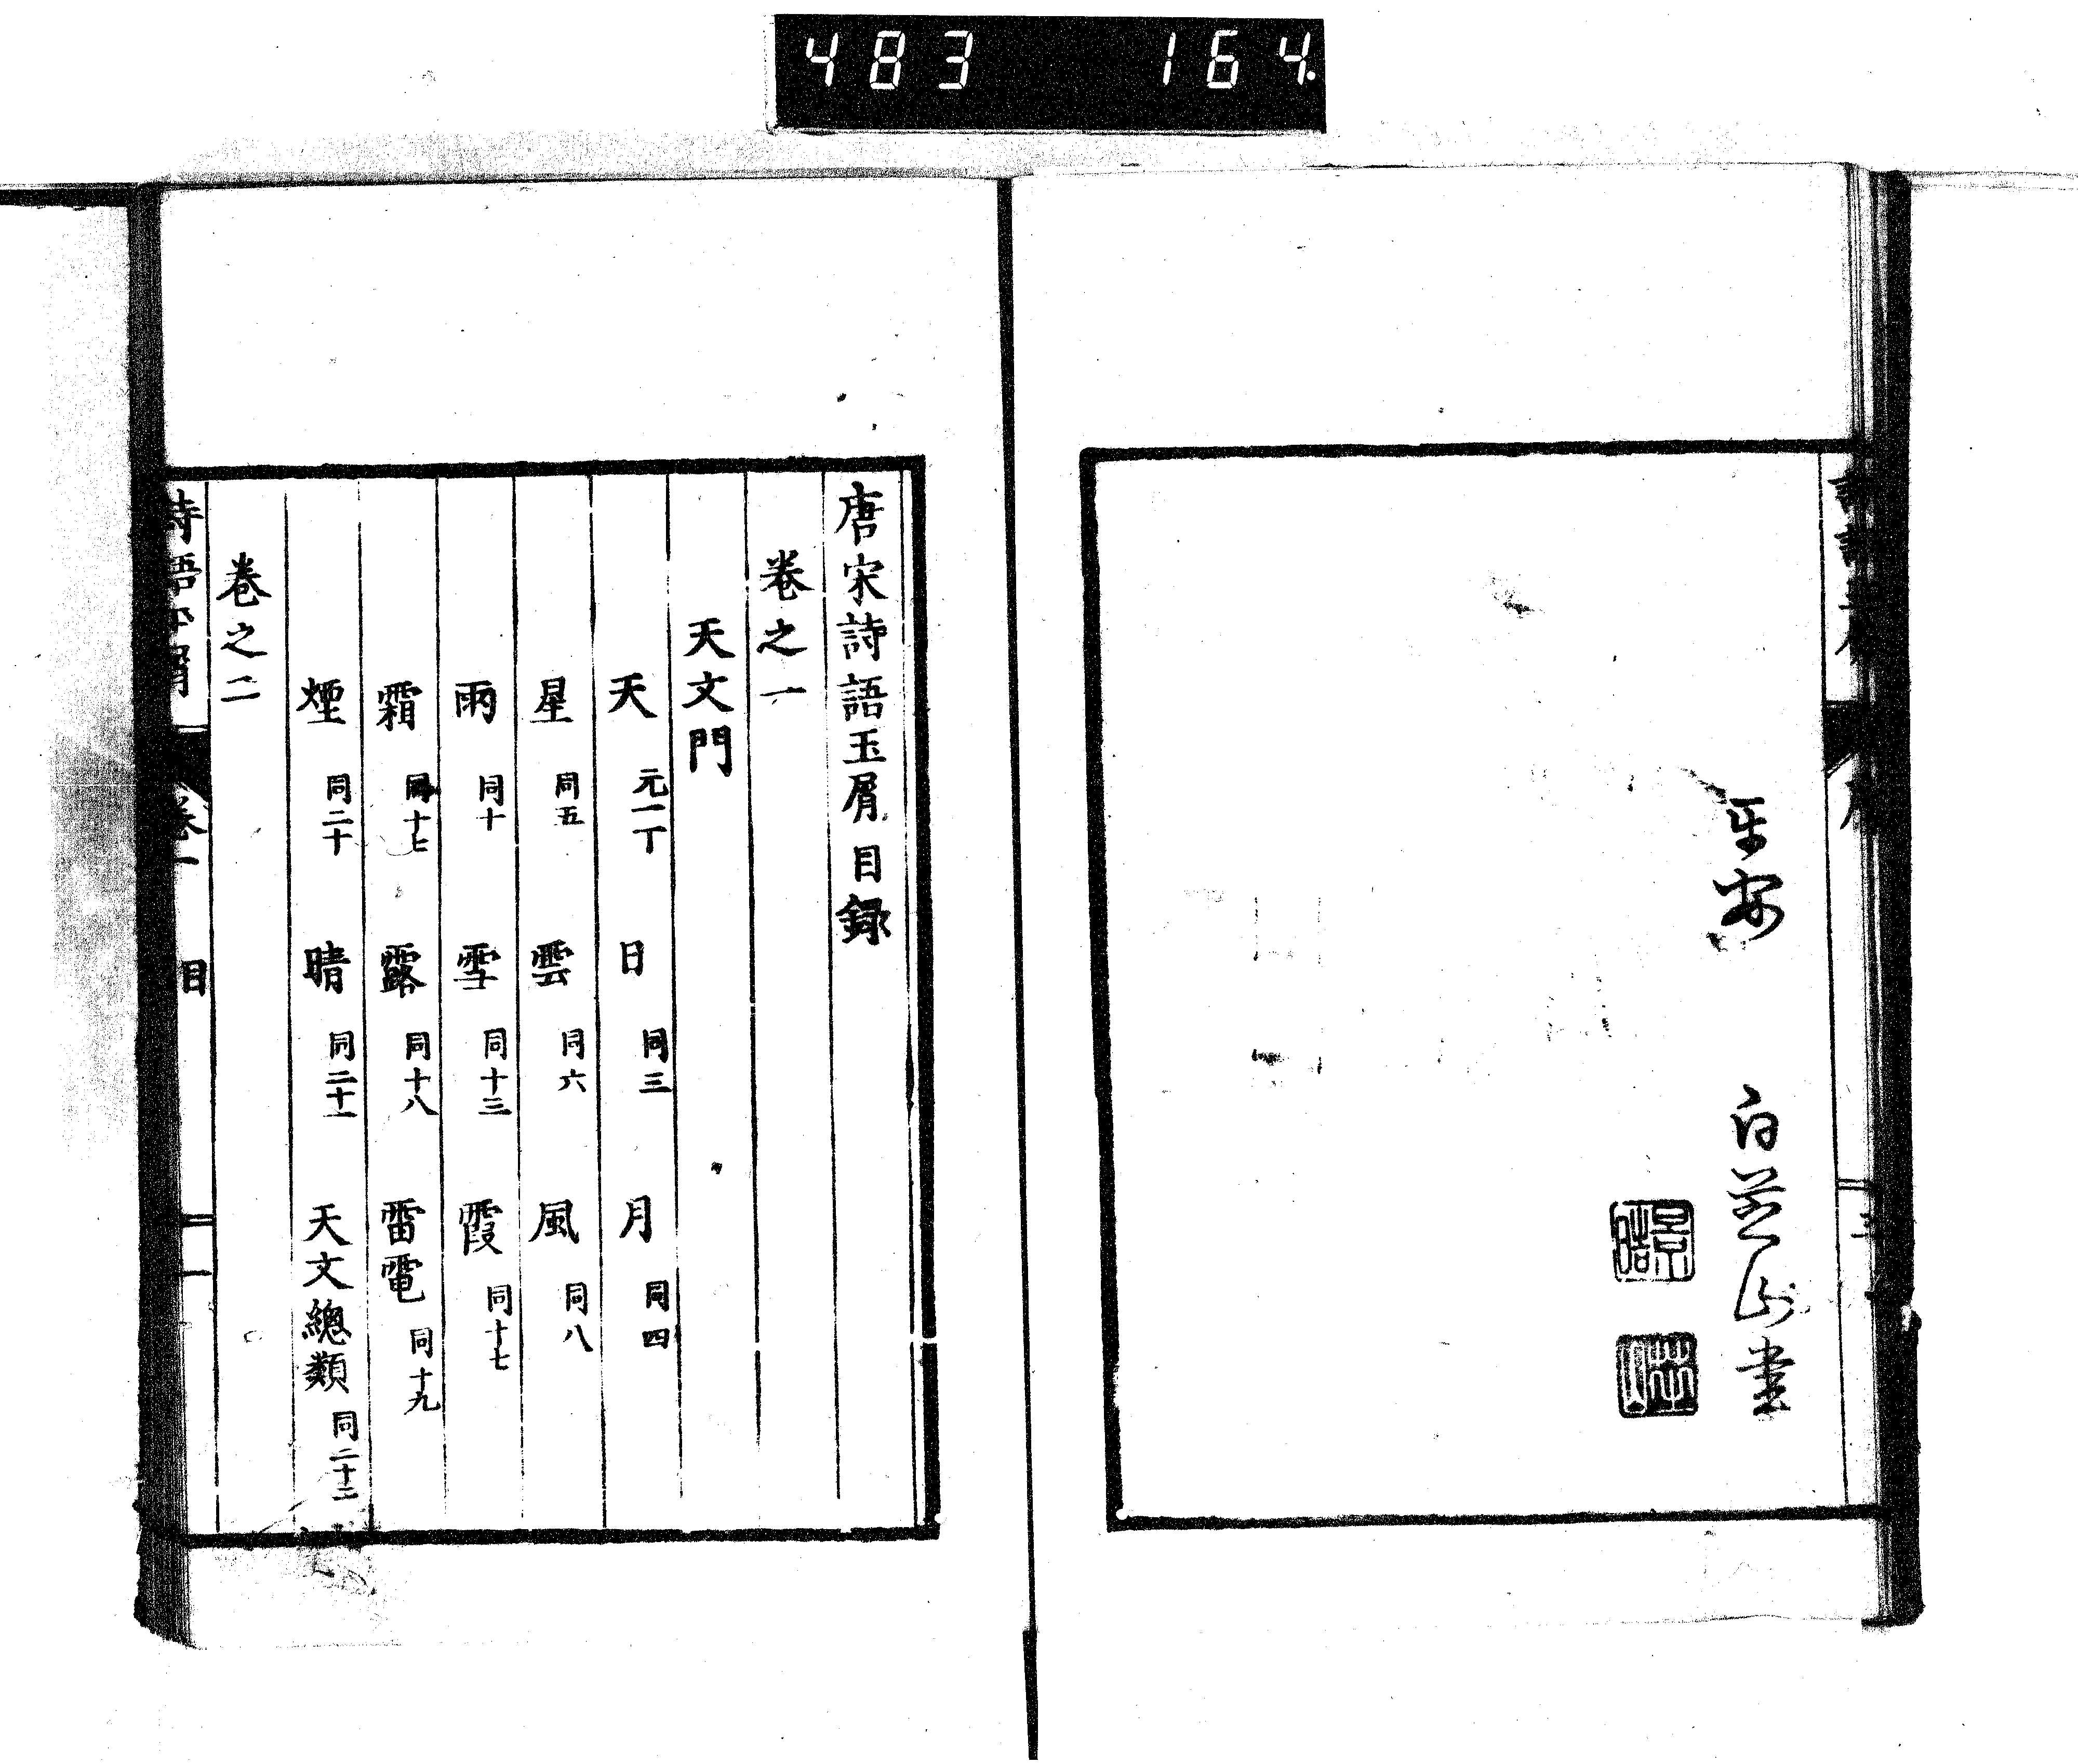 483 164.
平安 白芝山書
景皓
唐宋詩語玉屑目録
卷之一
天文門
天 元一丁 日 同三 月 同四
星 同五 雲 同六 風 同八
雨 同十 雪 同十三 霞 同十七
霜 同十七 露 同十八 雷電 同十九
煙 同二十 晴 同二十一 天文總類 同二十二
卷之二
詩語玉屑 卷一 目 一